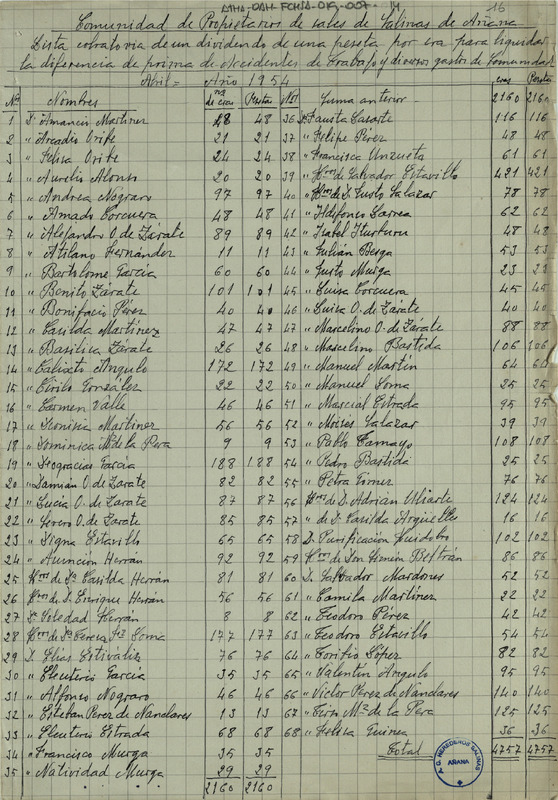 ATHA-DAH-FCHIA-015-001-14
16
Comunidad de Propietarios de sales de Salinas de Añana
Lista cobratoria de un dividendo de una peseta por era para liquidar
la diferencia de prima de Accidentes de trabajo y diversos gastos de Comunidad
Abril = Año 1954
Nº Nombres nº de eras Pesetas
1 Dn Amancio Martinez 48 48
2 " Arcadio Oribe 21 21
3 " Felisa Oribe 24 24
4 " Aurelio Alonso 20 20
5 " Andrea Nograro 97 97
6 " Amado Corcuera 48 48
7 " Alejandro O. de Zárate 89 89
8 " Atilano Fernández 11 11
9 " Bartolomé García 60 60
10 " Benito Zárate 101 101
11 " Bonifacio Pérez 40 40
12 " Casilda Martínez 47 47
13 " Basilisa Zárate 26 26
14 " Calixto Angulo 172 172
15 " Cirilo González 22 22
16 " Carmen Valle 46 46
17 " Dionisia Martinez 56 56
18 " Dominica Mª de la Pera 9 9
19 " Deogracias García 188 188
20 " Damián O. de Zarate 82 82
21 " Lucia O. de Zarate 87 87
22 " Severo O. de Zarate 85 85
23 " Digna Estavillo 65 65
24 " Asunción Herrán 92 92
25 Hros de Dª Casilda Herrán 81 81
26 Hros de D. Enrique Herrán 56 56
27 Dª Soledad Herrán 8 8
28 Hros de Dª Teresa Fz Soma 177 177
29 D. Elias Estiváliz 76 76
30 " Eleuterio García 35 35
31 " Alfonso Nograro 46 46
32 " Esteban Perez de Nanclares 13 13
33 " Eleuterio Estrada 68 68
34 " Francisco Murga 35 35
35 " Natividad Murga 29 29
2160 2160
Nº Suma anterior eras Pesetas
2160 2160
36 Dª Fausta Lasarte 116 116
37 " Felipe Pérez 48 48
38 " Francisca Unzueta 61 61
39 " Hros de Salvador Estavillo 421 421
40 " Hros de D. Justo Salazar 78 78
41 " Ildefonso Larrea 62 62
42 " Isabel Iturburu 48 48
43 " Julián Berga 53 53
44 " Justo Murga 23 23
45 " Luisa Corcuera 45 45
46 " Luisa O. de Zárate 40 40
47 " Marcelino O. de Zárate 88 88
48 " Marcelino Bastida 106 106
49 " Manuel Martín 64 64
50 " Manuel Soma 25 25
51 " Marcial Estrada 95 95
52 " Moisés Salazar 39 39
53 " Pablo Tamayo 108 108
54 " Pedro Bastida 25 25
55 " Petra Gómez 76 76
56 Hros de D. Adrián Uriarte 124 124
57 " de D. Casilda Argüelles 16 16
58 D. Purificación Huidobro 102 102
59 Hros de Don Fermín Beltrán 86 86
60 D. Salvador Mardones 52 52
61 " Camila Martinez 22 22
62 " Teodoro Pérez 42 42
63 " Teodoro Estavillo 54 54
64 " Toribio López 82 82
65 " Valentín Angulo 95 95
66 " Victor Perez de Nanclares 140 140
67 " Tirso Mª de la Pera 125 125
68 " Felisa Guinea 36 36
Total 4757 4757
A. G. HEREDEROS SALINAS
AÑANA